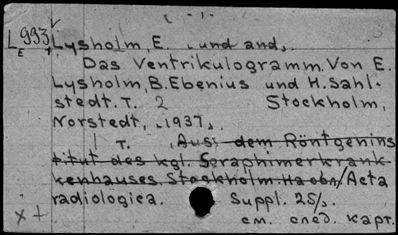 L 993
E 7
Lysholm, E. und and.
Das Ventrikulogramm. Von E.
Lysholm, B. Ebenius und H. Sahl-
stedt. T. 2 Stockholm,
Norstedt, 1937.
T. Aus dem Röntgenins
titut des kgl. Seraphimerkrank-
kenhauses Stockholm /Acta
radiologica. Suppl. 25/.
x + см. след. карт.